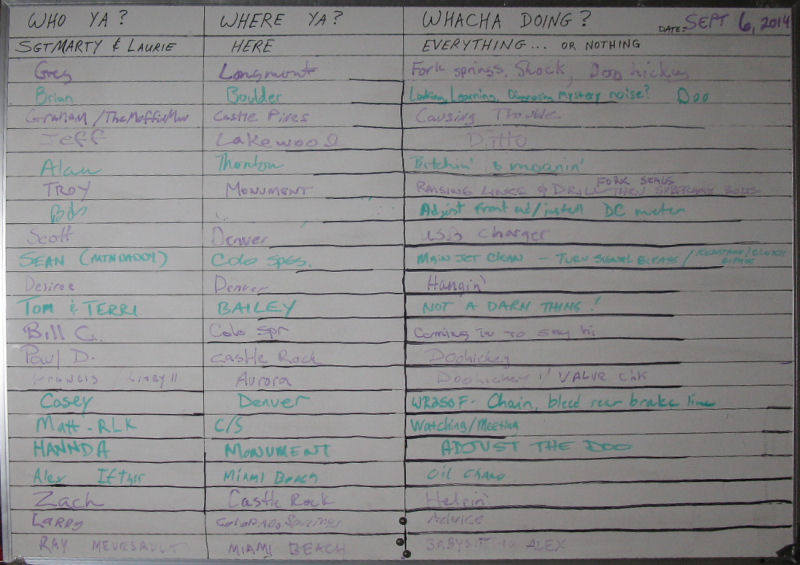 WHO YA? WHERE YA? WHACHA DOING? DATE: SEPT 6, 2014
SGTMARTY & LAURIE HERE EVERYTHING... OR NOTHING
Greg Longmont Fork springs, Shock, Doohickey
Brian Boulder Looking, Learning, Diagnosing mystery noise? Doo
Graham/TheMuffinMan Castle Pines Causing Trouble.
Jeff Lakewood Ditto
Alan Thornton Bitchin' & moanin'
TROY MONUMENT RAISING LINKS & DRILL FORK SEALS
Bob " Adjust front end/install DC meter
Scott Denver USB Charger
SEAN (MTNDADDY) Colo Spgs. MAIN JET CLEAN - TURN SIGNAL BYPASS/ KICKSTAND/CLUTCH BYPASS
Desiree Denver Hangin'
TOM & TERRI BAILEY NOT A DARN THING!
Bill G. Colo Spr Coming in to say hi
Paul D. Castle Rock Doohickey
Aurora Doohickey VALVE Chk
Casey Denver WR250F- Chain, bleed rear brake line
Matt-RLK C/S Watching/Meeting
HANNDA MONUMENT ADJUST THE DOO
Alex Miami Beach Oil
Zach Castle Rock Helpin'
LARRY Colorado Springs Advice
RAY MIAMI BEACH BABYSITTING ALEX